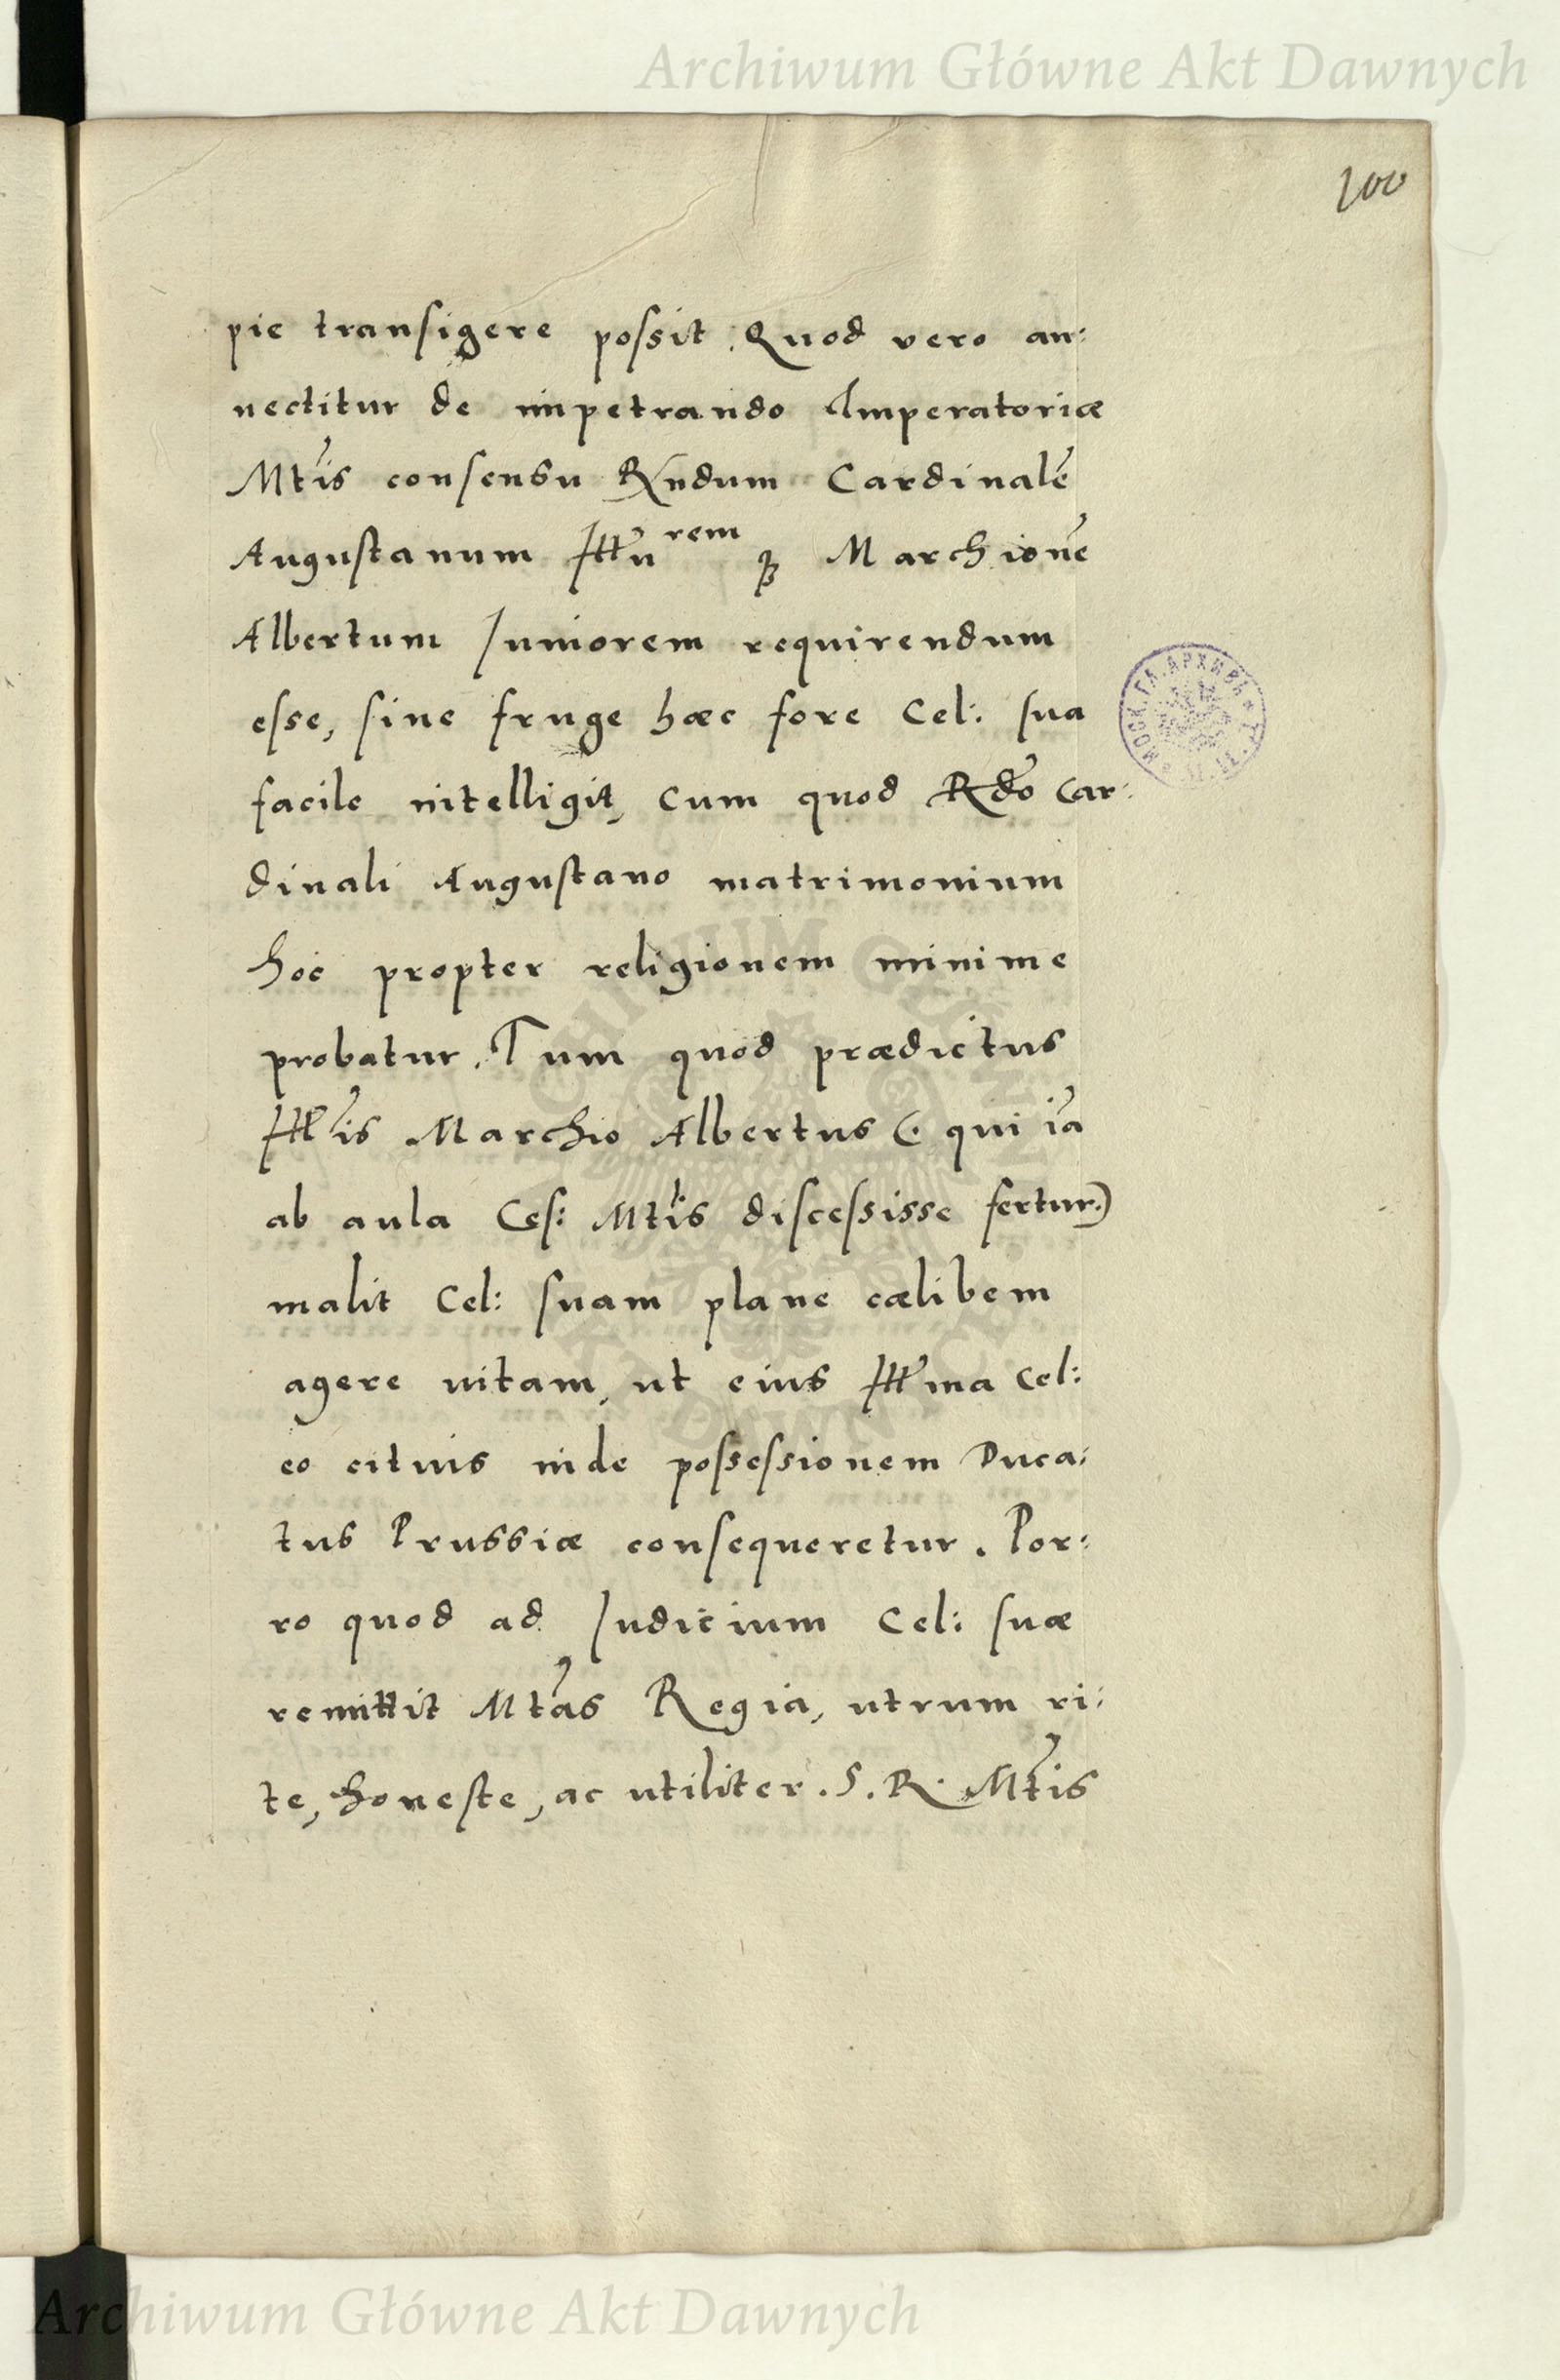 Archiwum Główne Akt Dawnych
100
pie transigere possit. Quod vero an:
nectitur de impetrando Imperatoriæ
Mtis consensu Rndum Cardinalē
Augustanum Illu rem qz Marchionē
Albertum Juniorem requirendum
esse, sine fruge hæc fore Cel: sua
facile intelligit, Cum quod Rdo Car:
dinali Augustano matrimonium
hoc propter religionem minime
probatur. Tum quod prædictus
Illris Marchio Albertus (: qui iā
ab aula Ces: Mtis discessisse fertur:)
malit Cel: suam plane cælibem
agere vitam, ut eius Illma Cel:
eo citius inde possessionem Duca:
tus Prussiæ consequeretur. Por:
ro quod ad Judicium Cel: suæ
remittit Mtas Regia, utrum ri:
te, honeste, ac utiliter. S. R. Mtis
Archiwum Główne Akt Dawnych